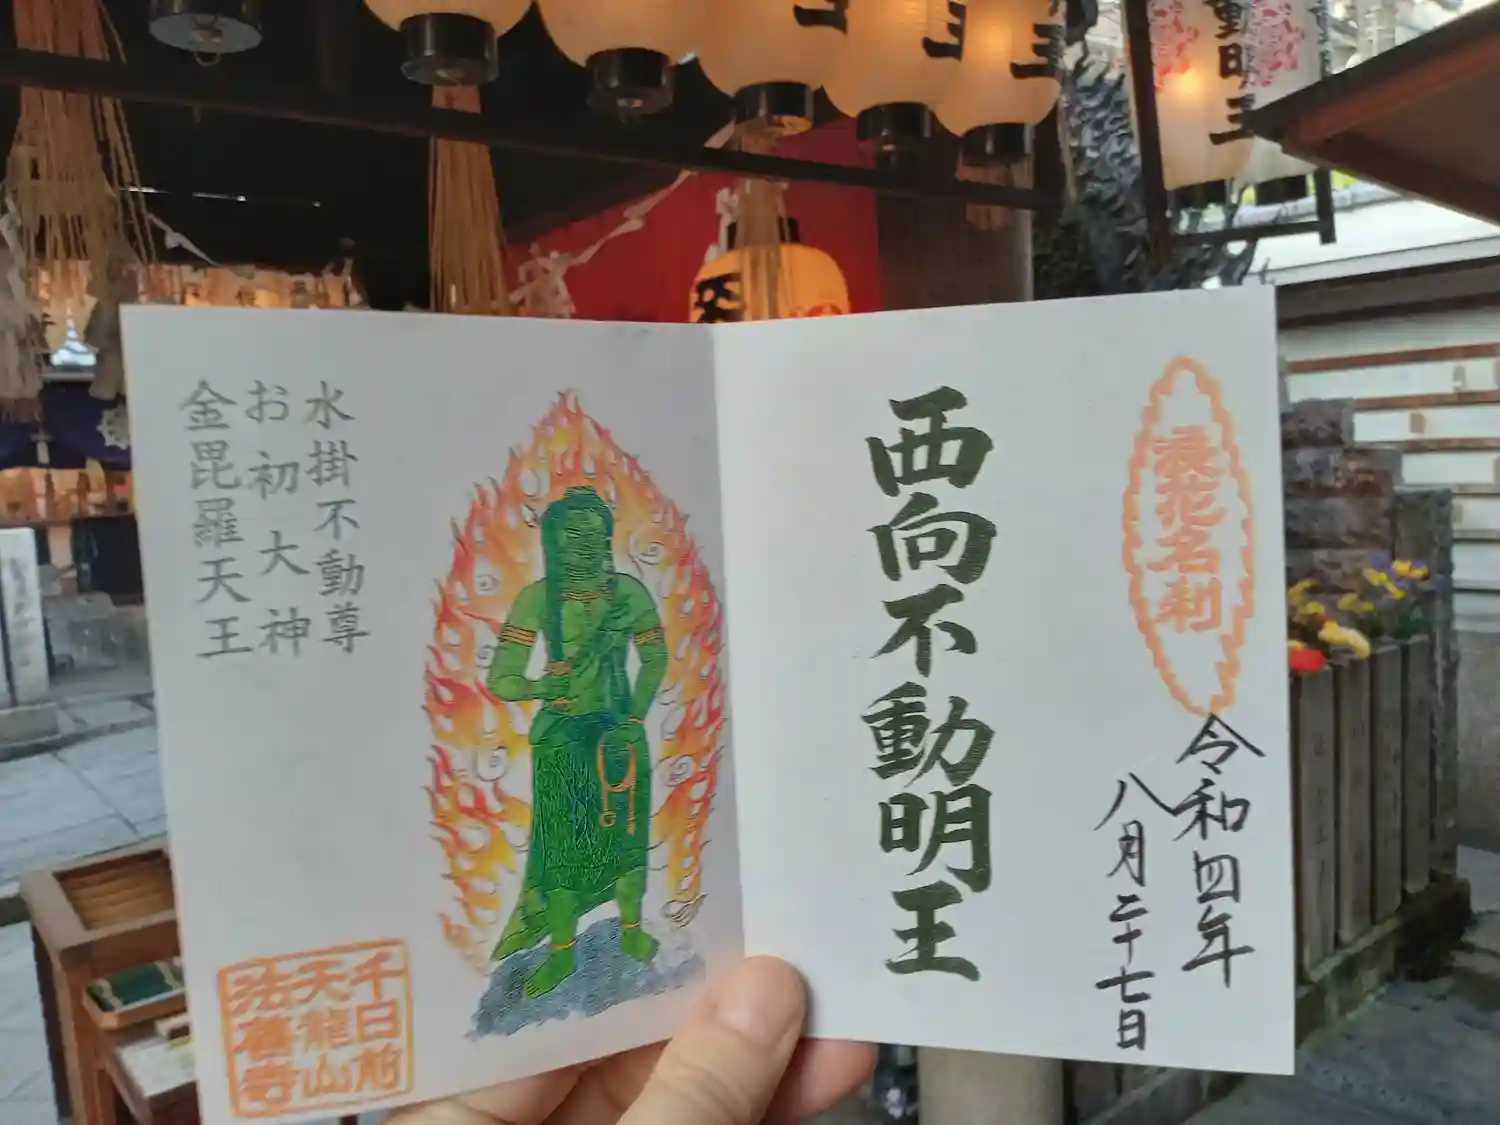 動明王
浪花名刹
令和四年
八月二十七日
西向不動明王
水掛不動尊
お初大神
金毘羅天王
千日前
天龍山
法善寺